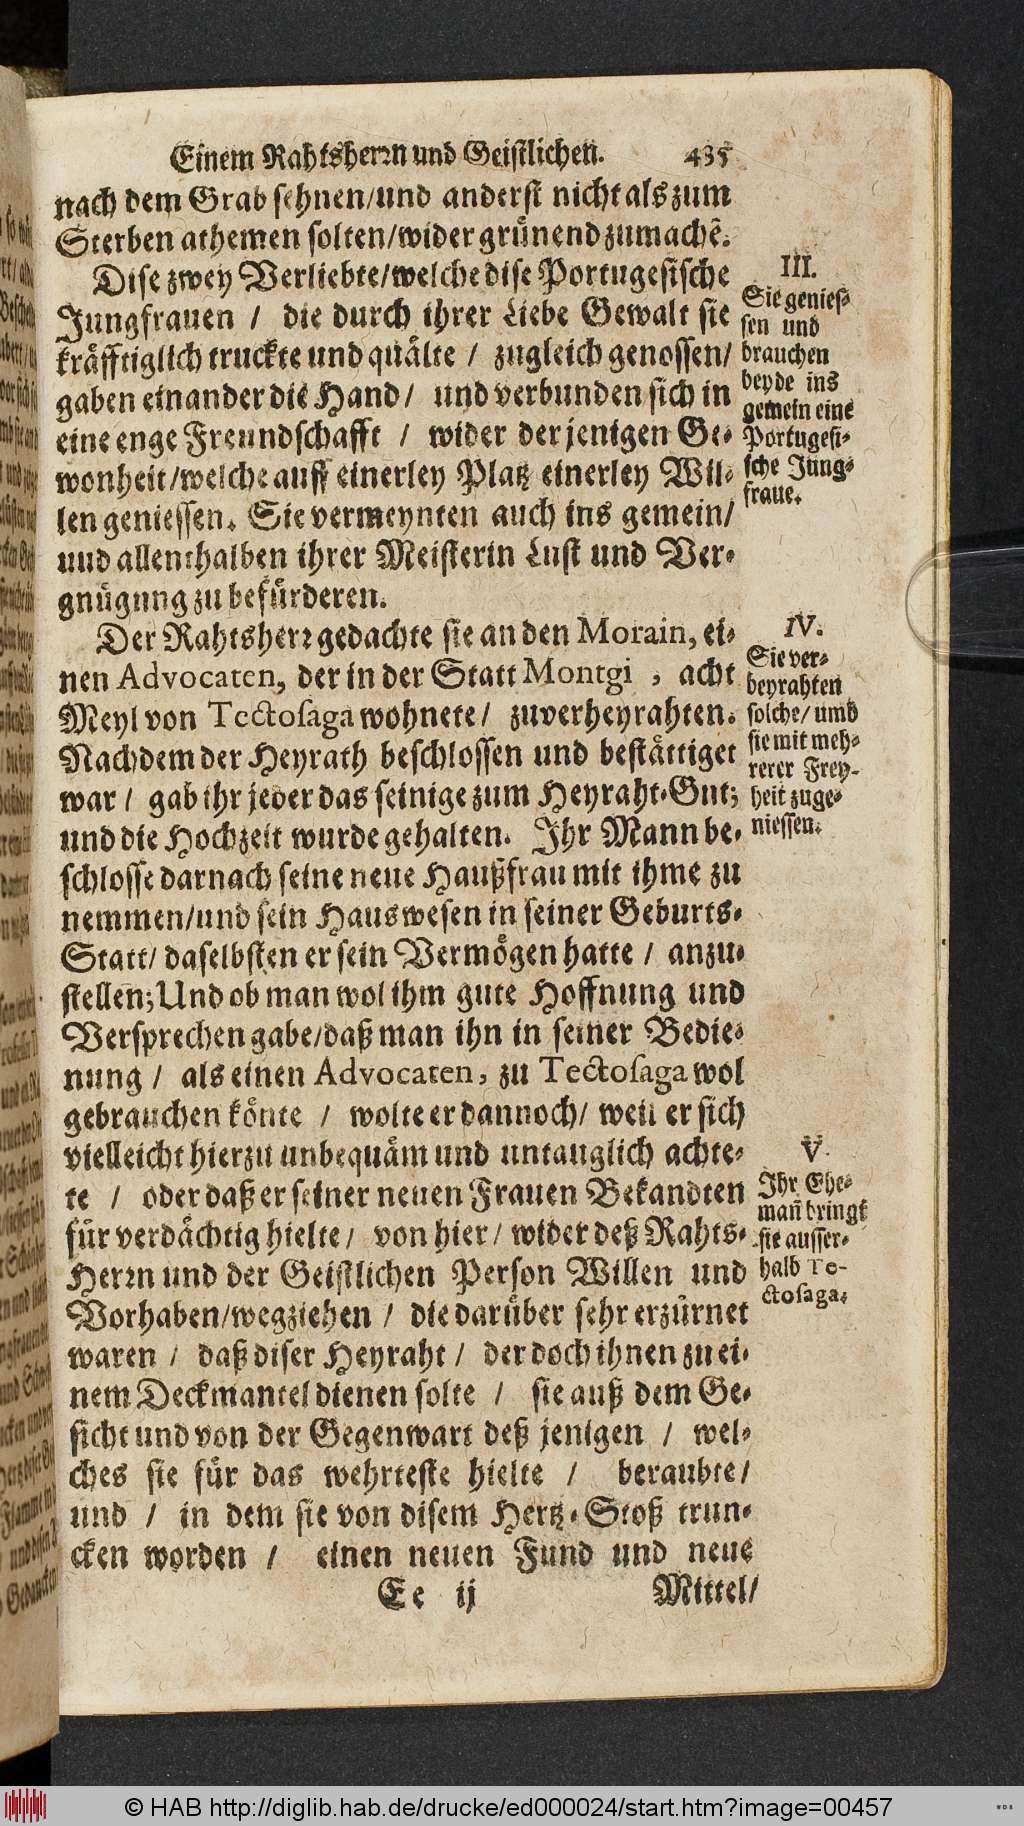 Einem Rahtsherꝛn und Geistlichen. 435
nach dem Grab sehnen/und anderst nicht als zum
Sterben athemen solten/wider grünend zumachē.
Dise zwey Verliebte/welche dise Portugesische
Jungfrauen / die durch ihrer Liebe Gewalt sie
kräfftiglich truckte und quälte / zugleich genossen/
gaben einander die Hand / und verbunden sich in
eine enge Freundschafft / wider derjenigen Ge-
wonheit/welche auff einerley Platz einerley Wil-
len geniessen. Sie vermeynten auch ins gemein/
uud allenthalben ihrer Meisterin Lust und Ver-
gnügung zu befürderen.
Der Rahtsherꝛ gedachte sie an den Morain, ei-
nen Advocaten, der in der Statt Montgi , acht
Meyl von Tectosaga wohnete / zuverheyrahten.
Nachdem der Heyrath beschlossen und bestättiget
war / gab ihr jeder das seinige zum Heyraht-Gut;
und die Hochzeit wurde gehalten. Ihr Mann be-
schlosse darnach seine neue Haußfrau mit ihme zu
nemmen/und sein Hauswesen in seiner Geburts-
Statt/ daselbsten er sein Vermögen hatte / anzu-
stellen; Und ob man wol ihm gute Hoffnung und
Versprechen gabe/daß man ihn in seiner Bedie-
nung / als einen Advocaten, zu Tectosaga wol
gebrauchen könte / wolte er dannoch/ weil er sich
vielleicht hierzu unbequäm und untauglich achte-
te / oder daß er seiner neuen Frauen Bekandten
für verdächtig hielte / von hier / wider deß Rahts-
Herꝛn und der Geistlichen Person Willen und
Vorhaben/wegziehen / die darüber sehr erzürnet
waren / daß diser Heyraht / der doch ihnen zu ei-
nem Deckmantel dienen solte / sie auß dem Ge-
sicht und von der Gegenwart deß jenigen / wel-
ches sie für das wehrteste hielte / beraubte/
und / in dem sie von disem Hertz-Stoß trun-
cken worden / einen neuen Fund und neue
Ee ij Mittel/
III.
Sie genies-
sen und
brauchen
beyde ins
gemein eine
Portugesi-
sche Jung-
fraue.
IV.
Sie ver-
heyrahten
solche/ umb
sie mit meh-
rerer Frey-
heit zuge-
niessen.
V.
Ihr Ehe-
mañ bringt
sie ausser-
halb Te-
ctosaga.
© HAB http://diglib.hab.de/drucke/ed000024/start.htm?image=00457